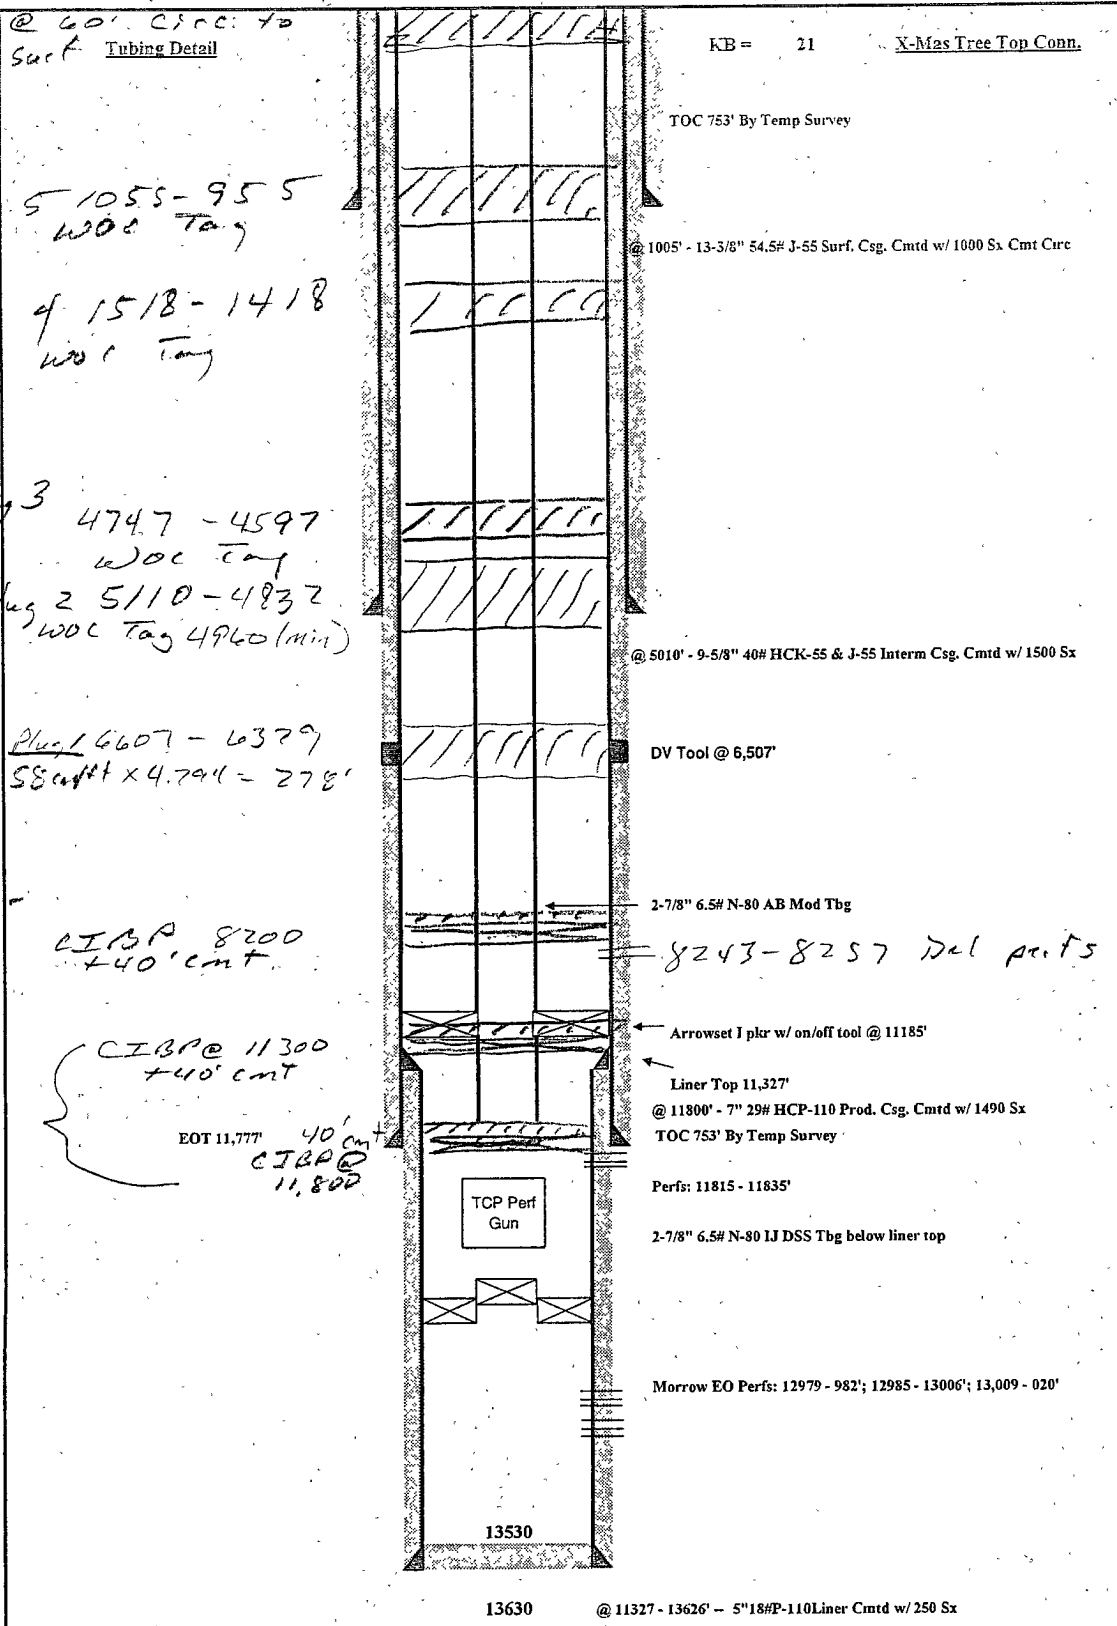 @ 60' Circ. to
Surf
Tubing Detail
KB = 21
X-Mas Tree Top Conn.
TOC 753' By Temp Survey
5 1055-955
WOC Tag
@ 1005' - 13-3/8" 54.5# J-55 Surf. Csg. Cmtd w/ 1000 Sx Cmt Circ
4 1518-1418
WOC Tag
3
4747 - 4597
WOC Tag
2 5110-4832
WOC Tag 4960 (min)
@ 5010' - 9-5/8" 40# HCK-55 & J-55 Interm Csg. Cmtd w/ 1500 Sx
Plug 1 6607 - 6329
DV Tool @ 6,507'
58 cuft x 4.794 = 278'
2-7/8" 6.5# N-80 AB Mod Tbg
CIBP 8200
+40' cmt.
8243-8257 Del perfs
Arrowset I pkr w/ on/off tool @ 11185'
CIBP@ 11300
+40' cmt
Liner Top 11,327'
@ 11800' - 7" 29# HCP-110 Prod. Csg. Cmtd w/ 1490 Sx
EOT 11,777'
40' cmt
TOC 753' By Temp Survey
CIBP@
11,800
Perfs: 11815 - 11835'
TCP Perf
Gun
2-7/8" 6.5# N-80 IJ DSS Tbg below liner top
Morrow EO Perfs: 12979 - 982'; 12985 - 13006'; 13,009 - 020'
13530
13630
@ 11327 - 13626' -- 5"18#P-110Liner Cmtd w/ 250 Sx